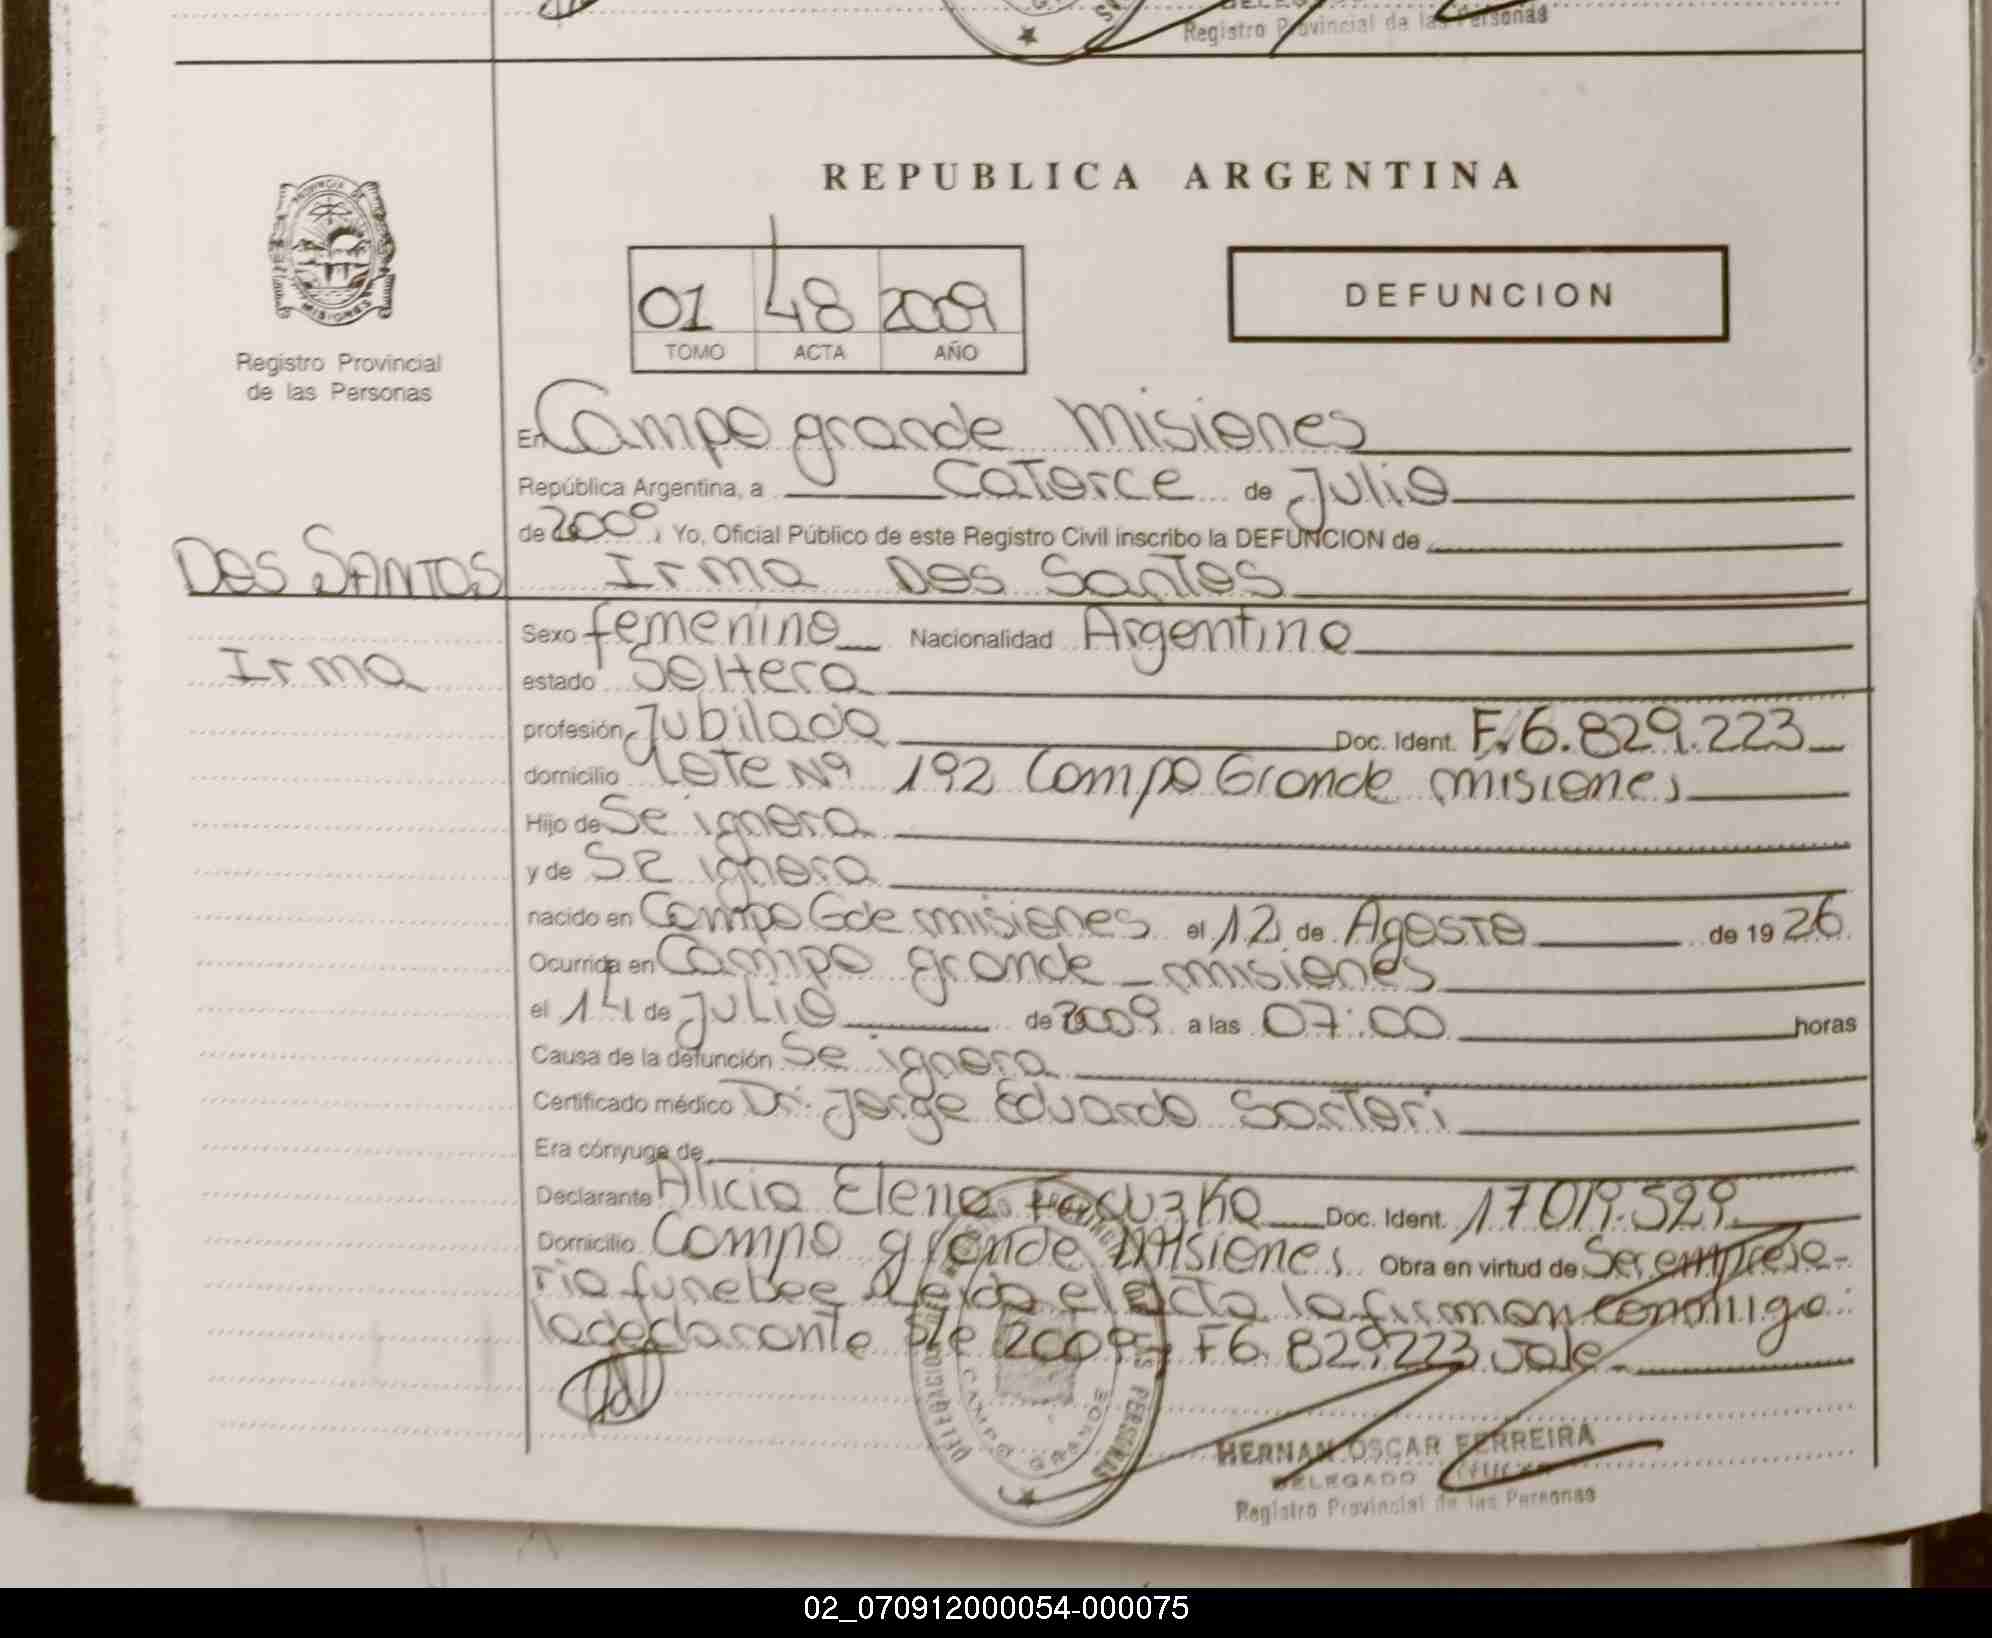 Registro Provincial de las Personas
REPUBLICA ARGENTINA
PROVINCIA DE
MISIONES
Registro Provincial
de las Personas
01 48 2009
TOMO ACTA AÑO
DEFUNCION
En Campo grande Misiones
República Argentina, a Catorce de Julio
de 2009, Yo, Oficial Público de este Registro Civil inscribo la DEFUNCION de
DOS SANTOS Irma Dos Santos
Sexo femenino Nacionalidad Argentino
Irma
estado Soltera
profesión Jubilada Doc. Ident. F. 6.829.223
domicilio Lote Nº 192 Campo Grande misiones
Hijo de Se ignora
y de Se ignora
nacido en Campo Gde misiones el 12 de Agosto de 19 26
Ocurrida en Campo grande misiones
el 14 de Julio de 2009 a las 07:00 horas
Causa de la defunción Se ignora
Certificado médico Dr. Jorge Eduardo Sartori
Era cónyuge de
Declarante Alicia Elena Doc. Ident. 17019.529
Domicilio Campo grande Misiones Obra en virtud de Ser empresa-
ria funebre Leida el acta la firman conmigo
la declarante 2009 - F6.829.223 Vale
DELEGACION
CAMPO GRANDE
PERSONAS
HERNAN OSCAR FERREIRA
DELEGADO
Registro Provincial de las Personas
02_070912000054-000075